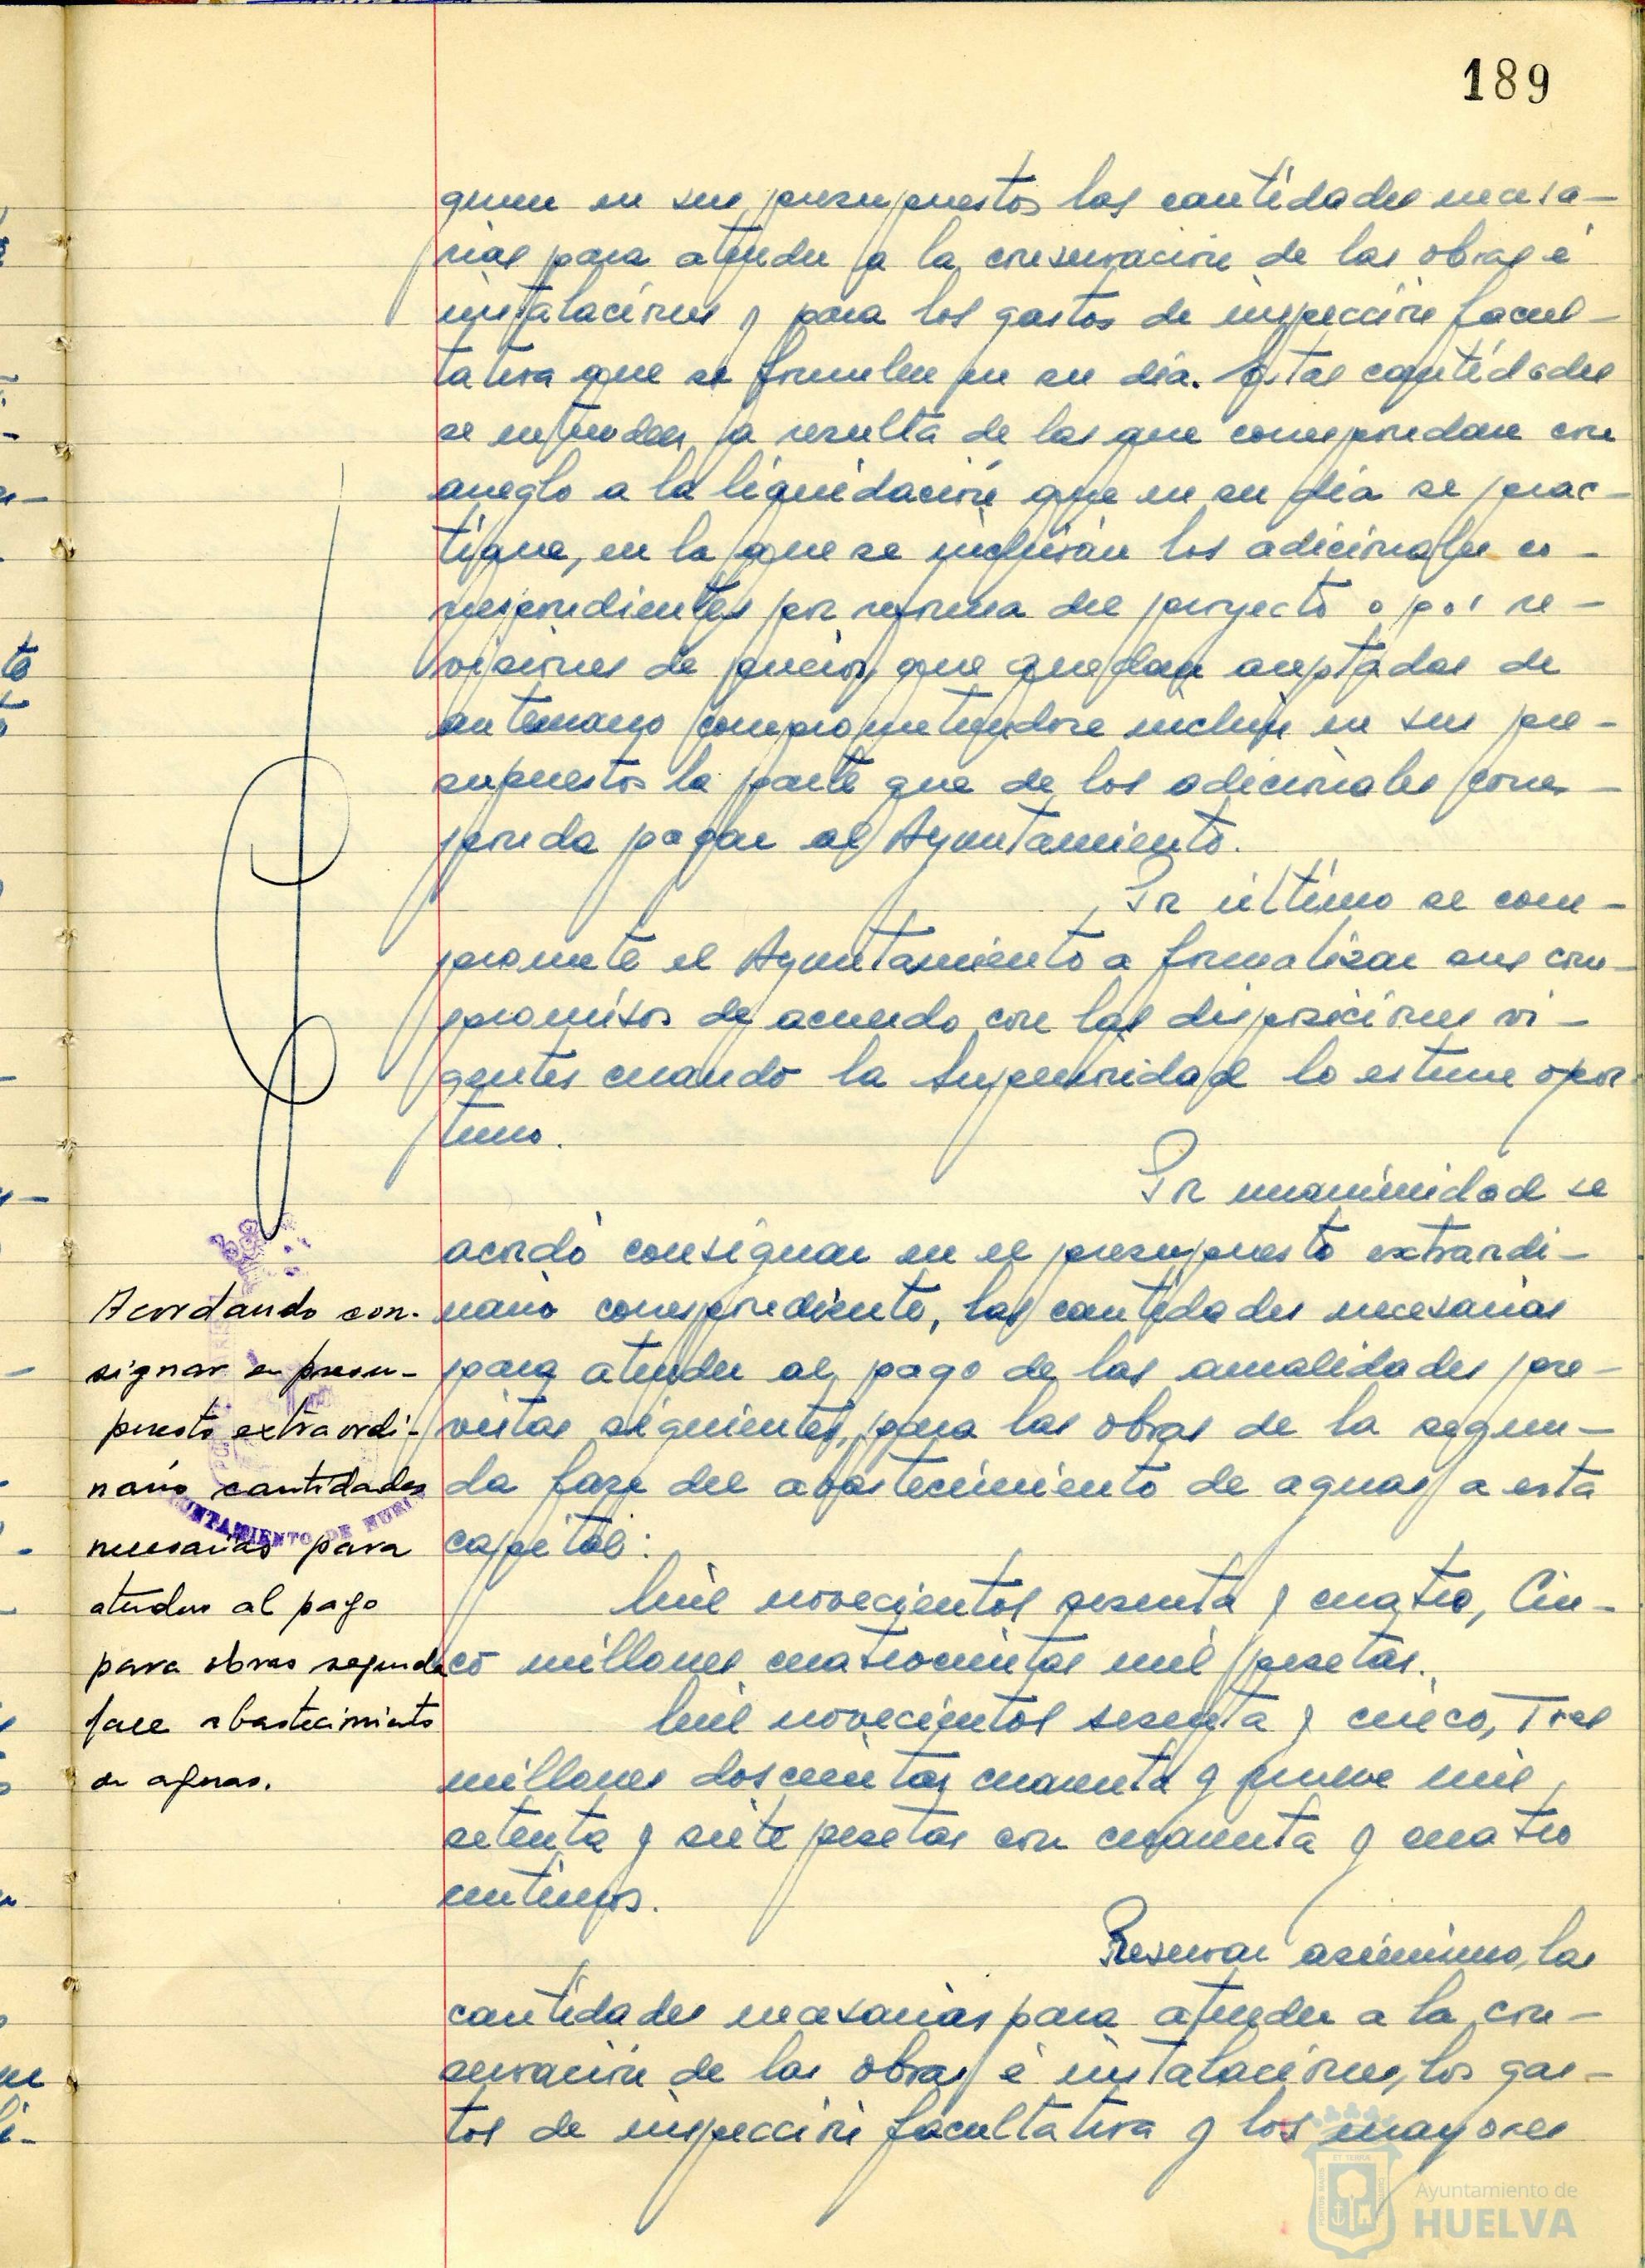 189
quen en sus presupuestos las cantidades necesa-
rias para atender a la conservación de las obras é
instalaciones y para los gastos de inspección facul-
tativa que se formulen en su día. Estas cantidades
se entienden a resulta de las que correspondan con
arreglo a la liquidación que en su día se prac-
tique, en la que se incluirán los adicionales co-
rrespondientes por reforma del proyecto o por re-
visiones de precios, que quedan aceptadas de
antemano comprometiendose incluir en sus pre-
supuestos la parte que de los adicionales corres-
ponda pagar al Ayuntamiento.
Por último se com-
promete el Ayuntamiento a formalizar sus com-
promisos de acuerdo con las disposiciones vi-
gentes cuando la Superioridad lo estime opor
tuno.
Por unanimidad se
acordó consignar en el presupuesto extraordi-
nario correspondiente, las cantidades necesarias
para atender al pago de las anualidades pre-
vistas siguientes, para las obras de la segun-
da fase del abastecimiento de aguas a esta
capital:
Mil novecientos sesenta y cuatro, Cin-
co millones cuatrocientas mil pesetas.
Mil novecientos sesenta y cinco, Tres
millones doscientas cuarenta y nueve mil
setenta y siete pesetas con cuarenta y cuatro
centimos.
Reservar asimismo, las
cantidades necesarias para atender a la con-
servación de las obras é instalaciones, los gas-
tos de inspección facultativa y los mayores
Acordando con-
signar en presu-
puesto extraordi-
nario cantidades
necesarias para
atender al pago
para obras segunda
fase abastecimiento
de aguas.
AYUNTAMIENTO DE HUELVA
Ayuntamiento de
HUELVA